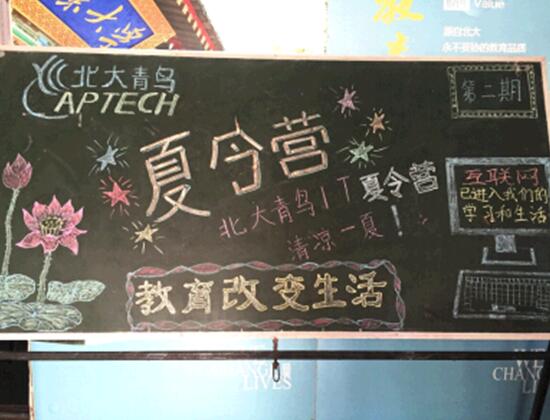 Value
源自北大
永不妥协的教育品质
北大青鸟
APTECH
第二期
夏令营
北大青鸟IT夏令营
清凉一夏！
互联网
已进入我们的
学习和生活
教育改变生活
WE
CHANGE
LIVES
WE
CHANG
LIVE